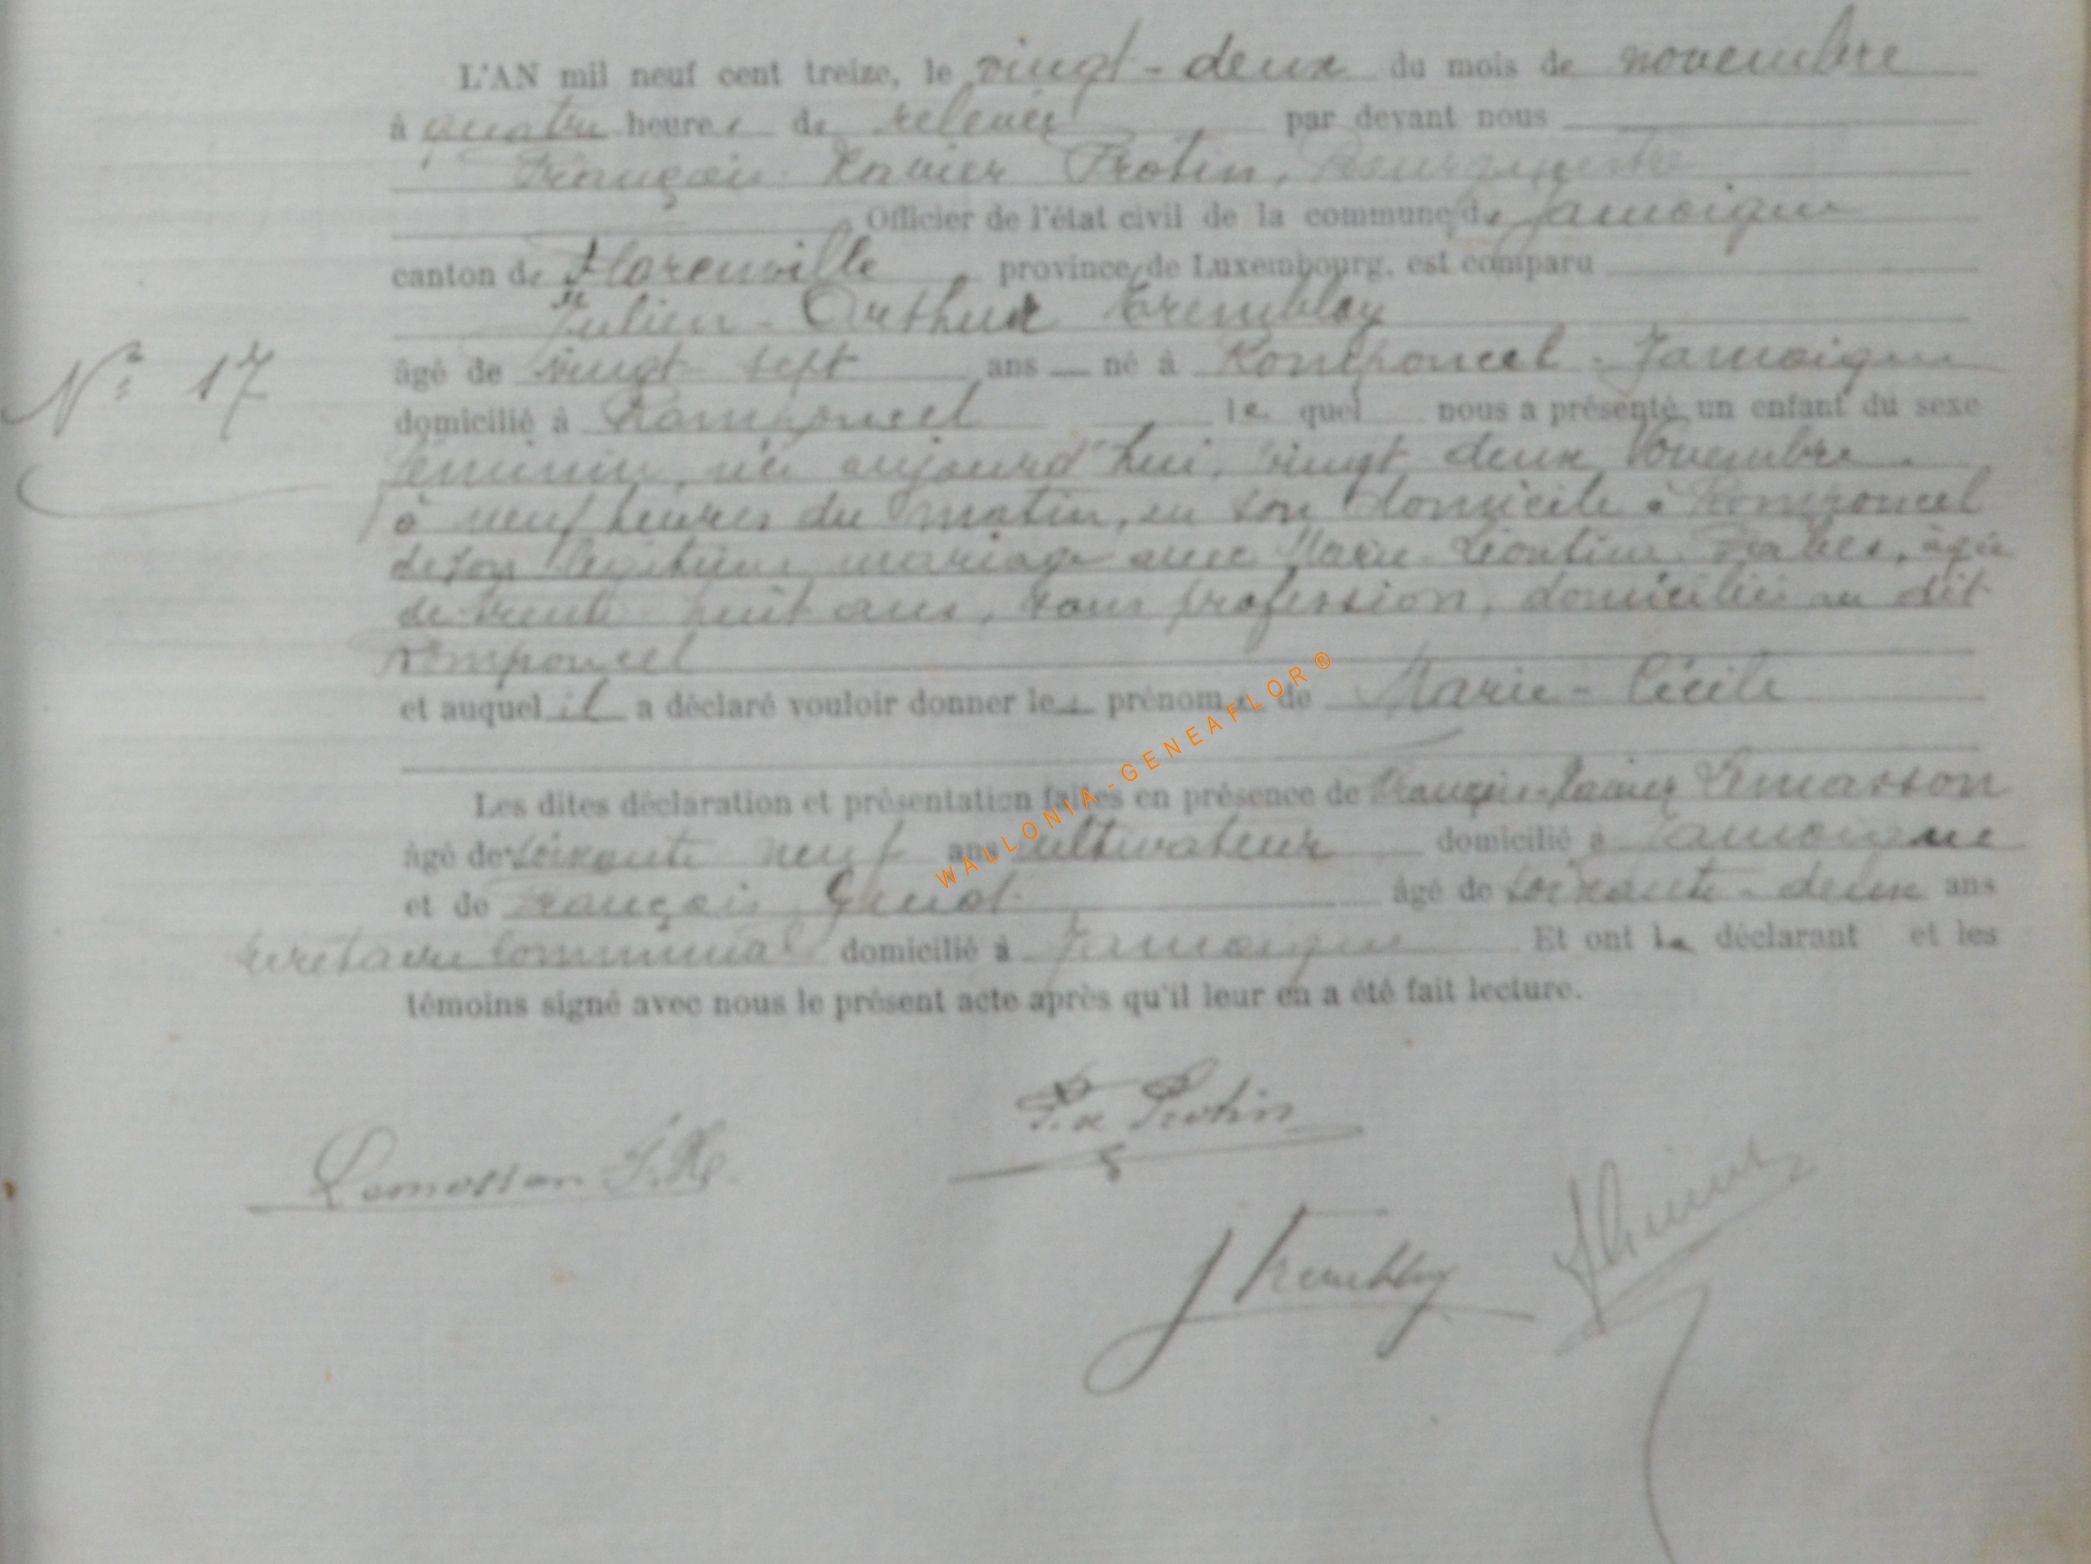 L'AN mil neuf cent treize, le vingt-deux du mois de novembre
à quatre heures de relevée par devant nous
François Xavier Protin, Bourgmestre
Officier de l'état civil de la commune de Jamoigne
canton de Florenville, province de Luxembourg, est comparu
Julien-Arthur Trembloy
N° 17
âgé de vingt-sept ans né à Romponcel-Jamoigne
domicilié à Romponcel lequel nous a présenté un enfant du sexe
féminin, née aujourd'hui, vingt deux Novembre
à neuf heures du matin, en son domicile à Romponcel
de son légitime mariage avec Marie-Léontine, âgée
de trente-huit ans, sans profession, domiciliée au dit
Romponcel
et auquel il a déclaré vouloir donner les prénoms de Marie-Cécile
Les dites déclaration et présentation faites en présence de François-Xavier Lemasson
âgé de soixante neuf ans cultivateur domicilié à Jamoigne
et de François âgé de soixante-deux ans
secrétaire communal domicilié à Jamoigne Et ont le déclarant et les
témoins signé avec nous le présent acte après qu'il leur en a été fait lecture.
WALLONIA-GENEAFLOR ®
F. X Protin
Lemasson F. X.
J Trembloy